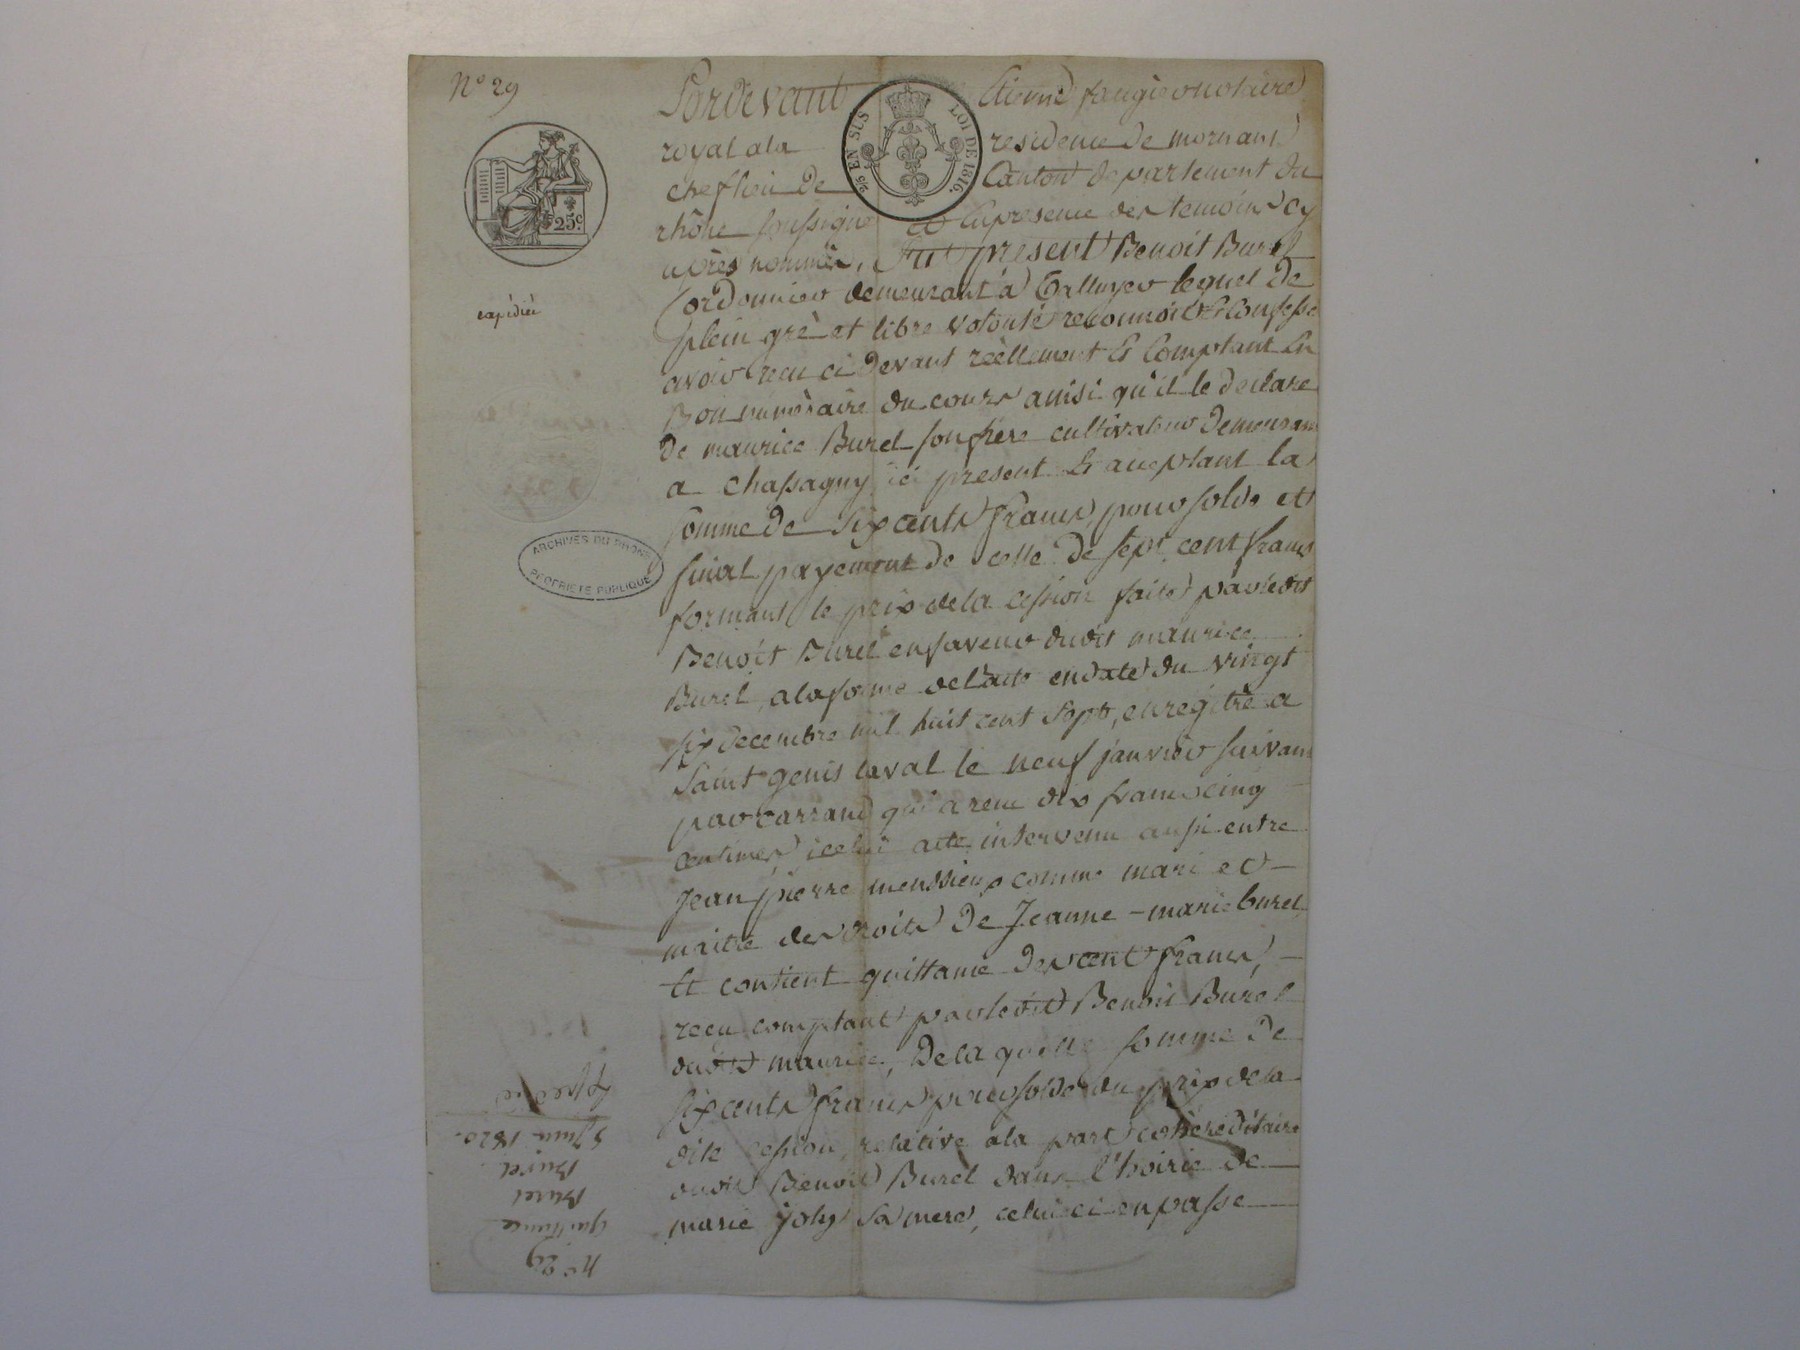 N° 29
Pardevant Etienne faugier notaire
royal a la residence de mornant
chef lieu de Canton departement du
rhône soussigné et En presence des temoins cy
après nommés, fut present Benoit Burel
Cordonnier demeurant à Talluyer lequel de
plein gré et libre volonté reconnoit Et Confesse
avoir recu ci devant réellement Et Comptant En
Bon numéraire du cours ainsi qu'il le declare
de maurice Burel son frère cultivateur demeurant
a chassagny ici present Et acceptant la
somme de six cents francs, pour solde et
final payement de celle de sept cent francs
formant le prix de la cession faite par ledit
Benoit Burel en faveur dudit maurice
Burel, a la forme de l'acte en date du vingt
six decembre mil huit cent sept, enregitré a
Saint genis laval le neuf janvier suivant
par carrand qui a recu dix francs cinq
centimes icelui acte intervenu aussi entre
Jean pierre menssieux comme mari et
maitre des droits de Jeanne-marie burel
Et contient quittance des cent francs,
recu comptant par ledit Benoit Burel
dudit maurice, De la quelle somme de
six cents francs pour solde du prix de la
dite cession, relative a la part cohéréditaire
dudit Benoit Burel dans l'hoirie de
marie joly sa mere, celui ci en passe
25c
2/5 EN SUS LOI DE 1816.
expédiée
ARCHIVES DU RHÔNE
PROPRIETE PUBLIQUE
N° 29
quittance
Burel
Burel
5 Juin 1820.
Expediée